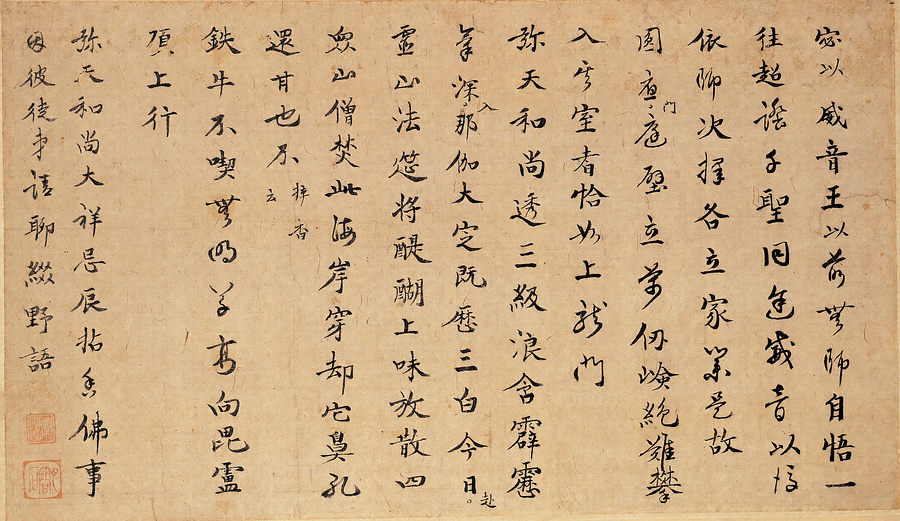 密以威音王以前無師自悟一
往超諸千聖同途威音以後
依師次擇各立家業是故
圓庭壁立万仞嶮絶難攀
門
入其室者恰如上龍門
弥天和尚透三級浪含霹靂
氣深入那伽大定既歴三白今日赴
霊山法莚将醍醐上味放散四
衆山僧焚此海岸穿却它鼻孔
還甘也不
插香云
鉄牛不喫無明草直向毘盧
頂上行
弥天和尚大祥忌辰拈香佛事
因彼徒弟請聊綴野語